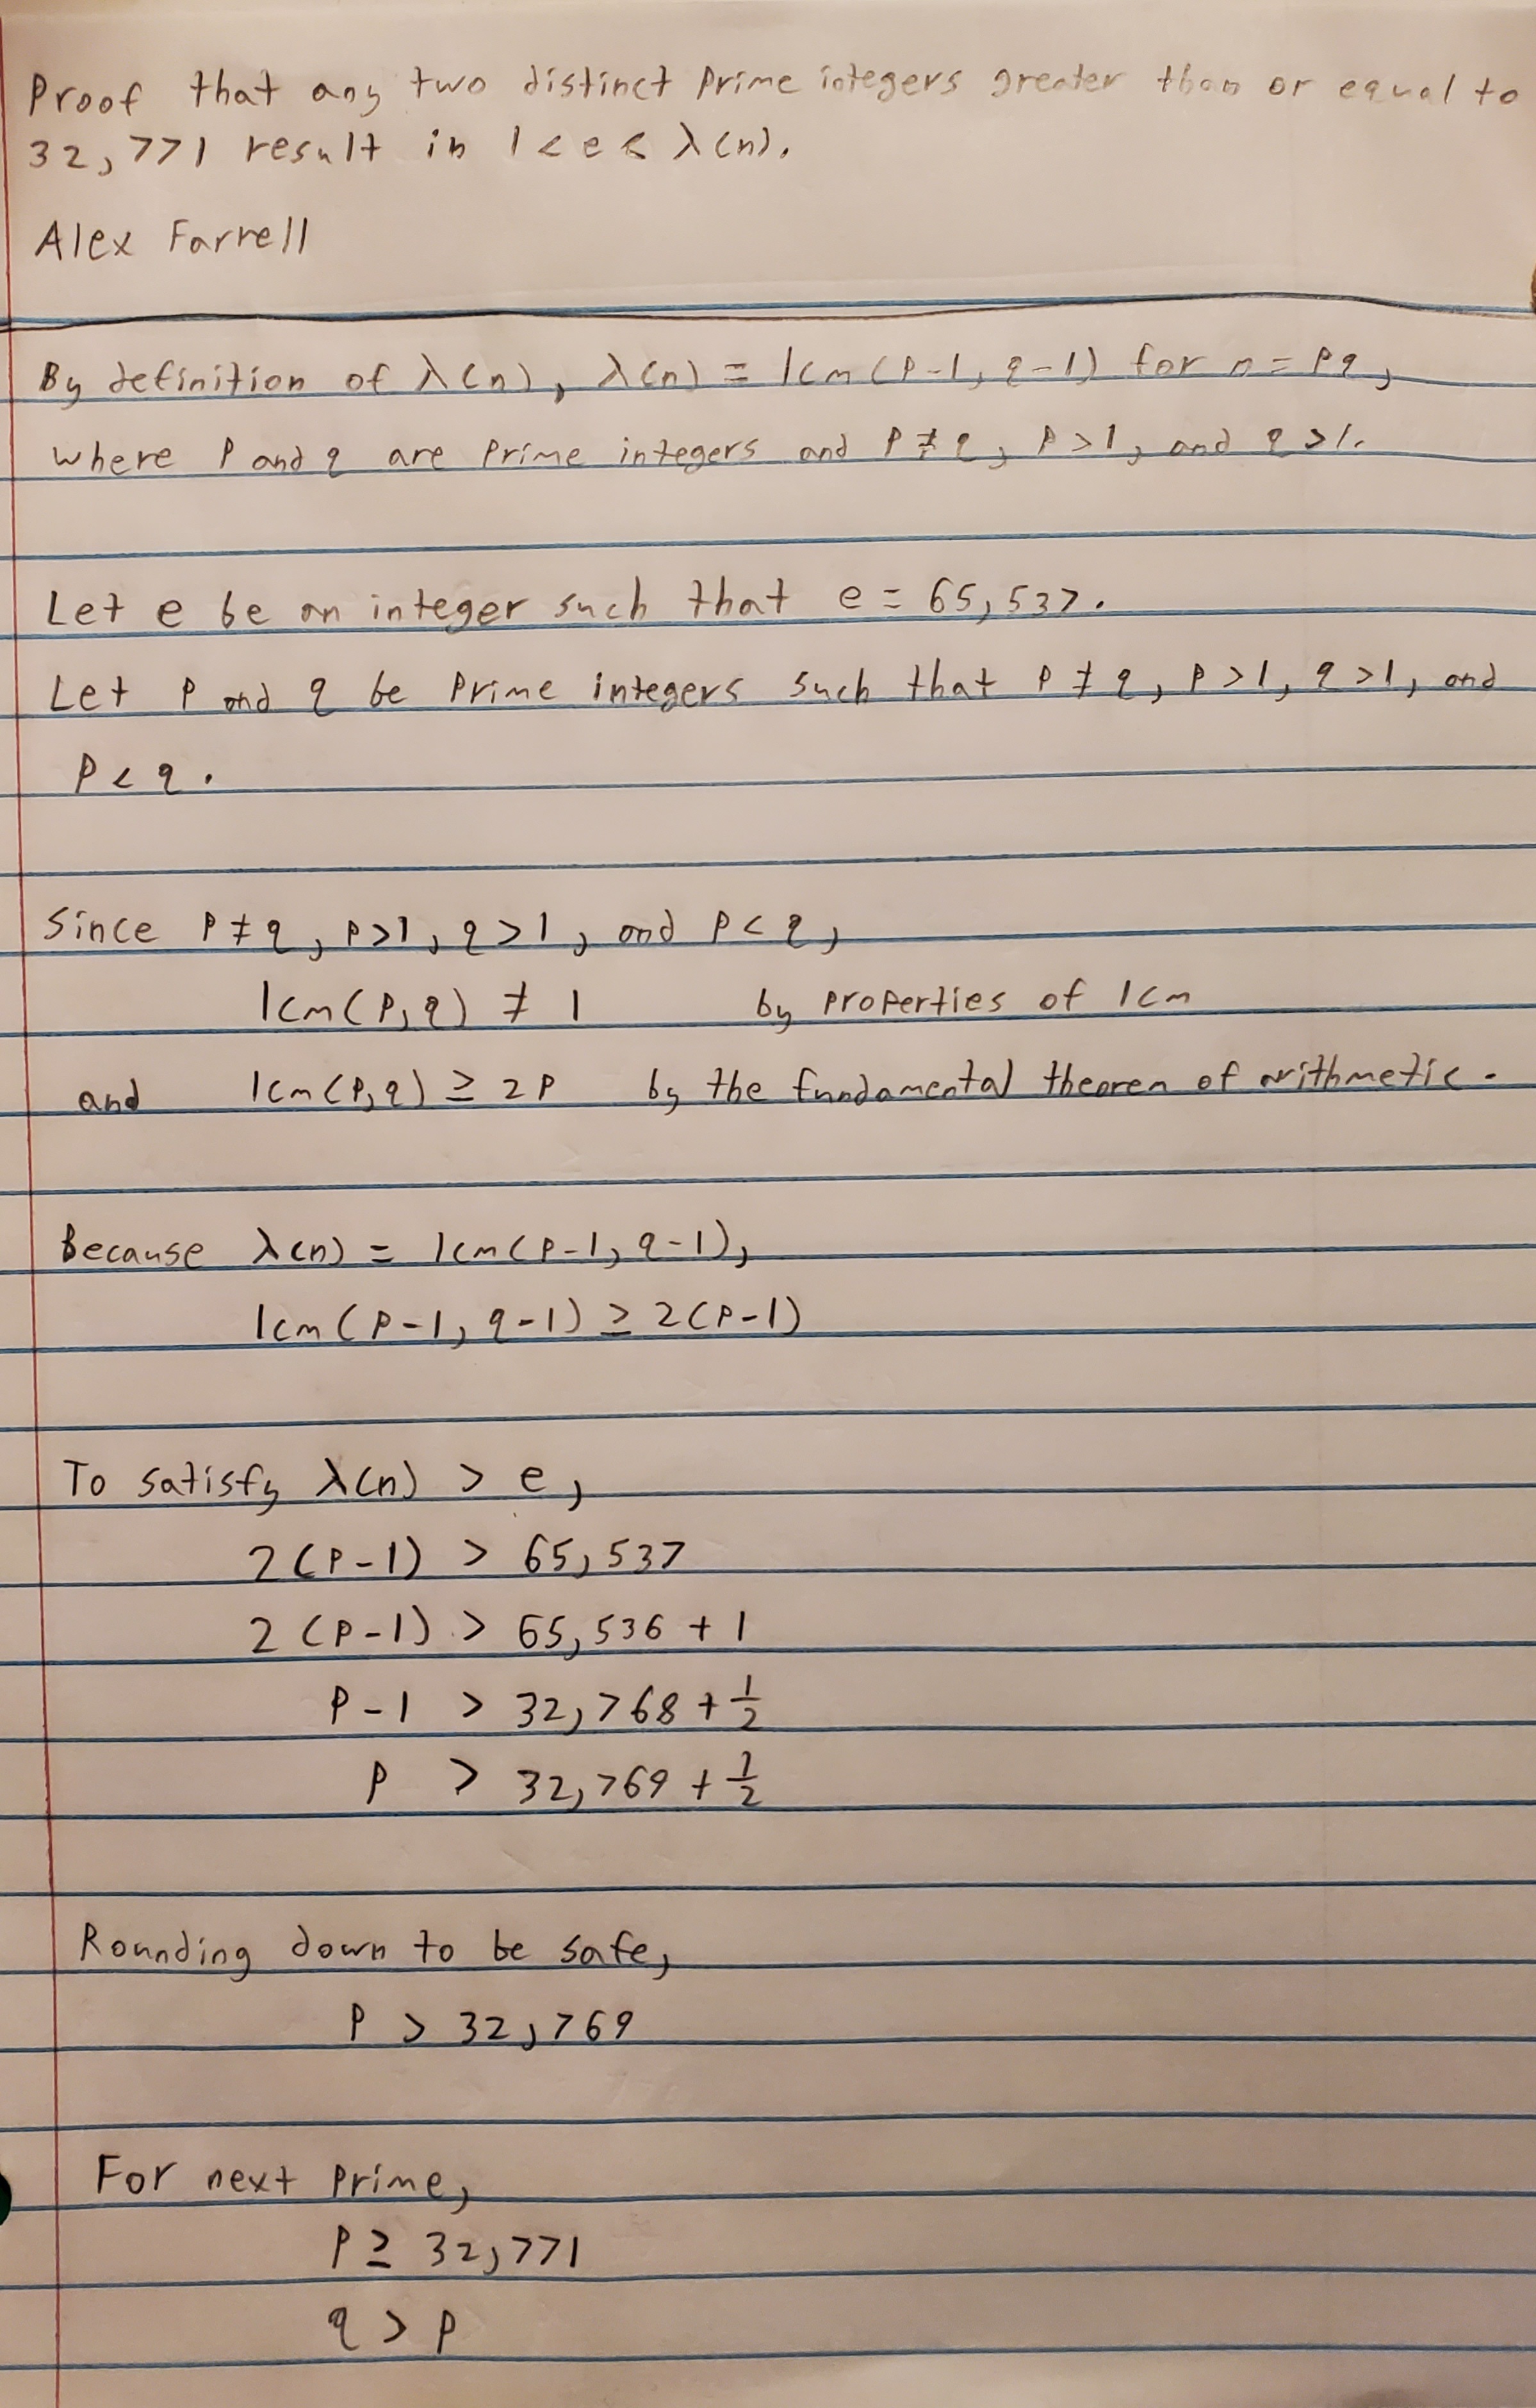 Proof that any two distinct prime integers greater than or equal to
32,771 result in 1 < e < λ(n).
Alex Farrell
By definition of λ(n), λ(n) = lcm(p-1, q-1) for n = pq,
where p and q are prime integers and p ≠ q, p > 1, and q > 1.
Let e be an integer such that e = 65,537.
Let p and q be prime integers such that p ≠ q, p > 1, q > 1, and
p < q.
Since p ≠ q, p > 1, q > 1, and p < q,
lcm(p,q) ≠ 1 by properties of lcm
and lcm(p,q) ≥ 2p by the fundamental theorem of arithmetic.
Because λ(n) = lcm(p-1, q-1),
lcm(p-1, q-1) ≥ 2(p-1)
To satisfy λ(n) > e,
2(p-1) > 65,537
2(p-1) > 65,536 + 1
p-1 > 32,768 + 1/2
p > 32,769 + 1/2
Rounding down to be safe,
p > 32,769
For next prime,
p ≥ 32,771
q > p